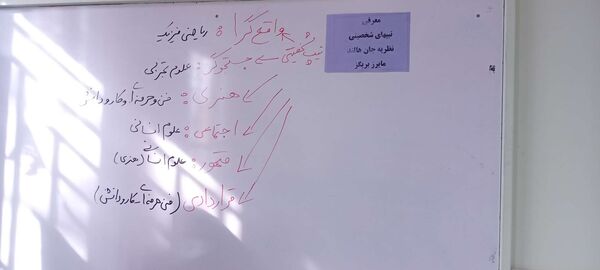 معرفی
تیپهای شخصیتی
نظریه جان هالند
مایرز بریگز
واقع گرا : ریاضی فیزیک
تیپ شخصیتی
جستجوگر : علوم تجربی
هنری : فنی و حرفه ای و کارودانش
اجتماعی : علوم انسانی
متهور : علوم انسانی (هنری)
قراردادی (فنی حرفه ای - کارودانش)